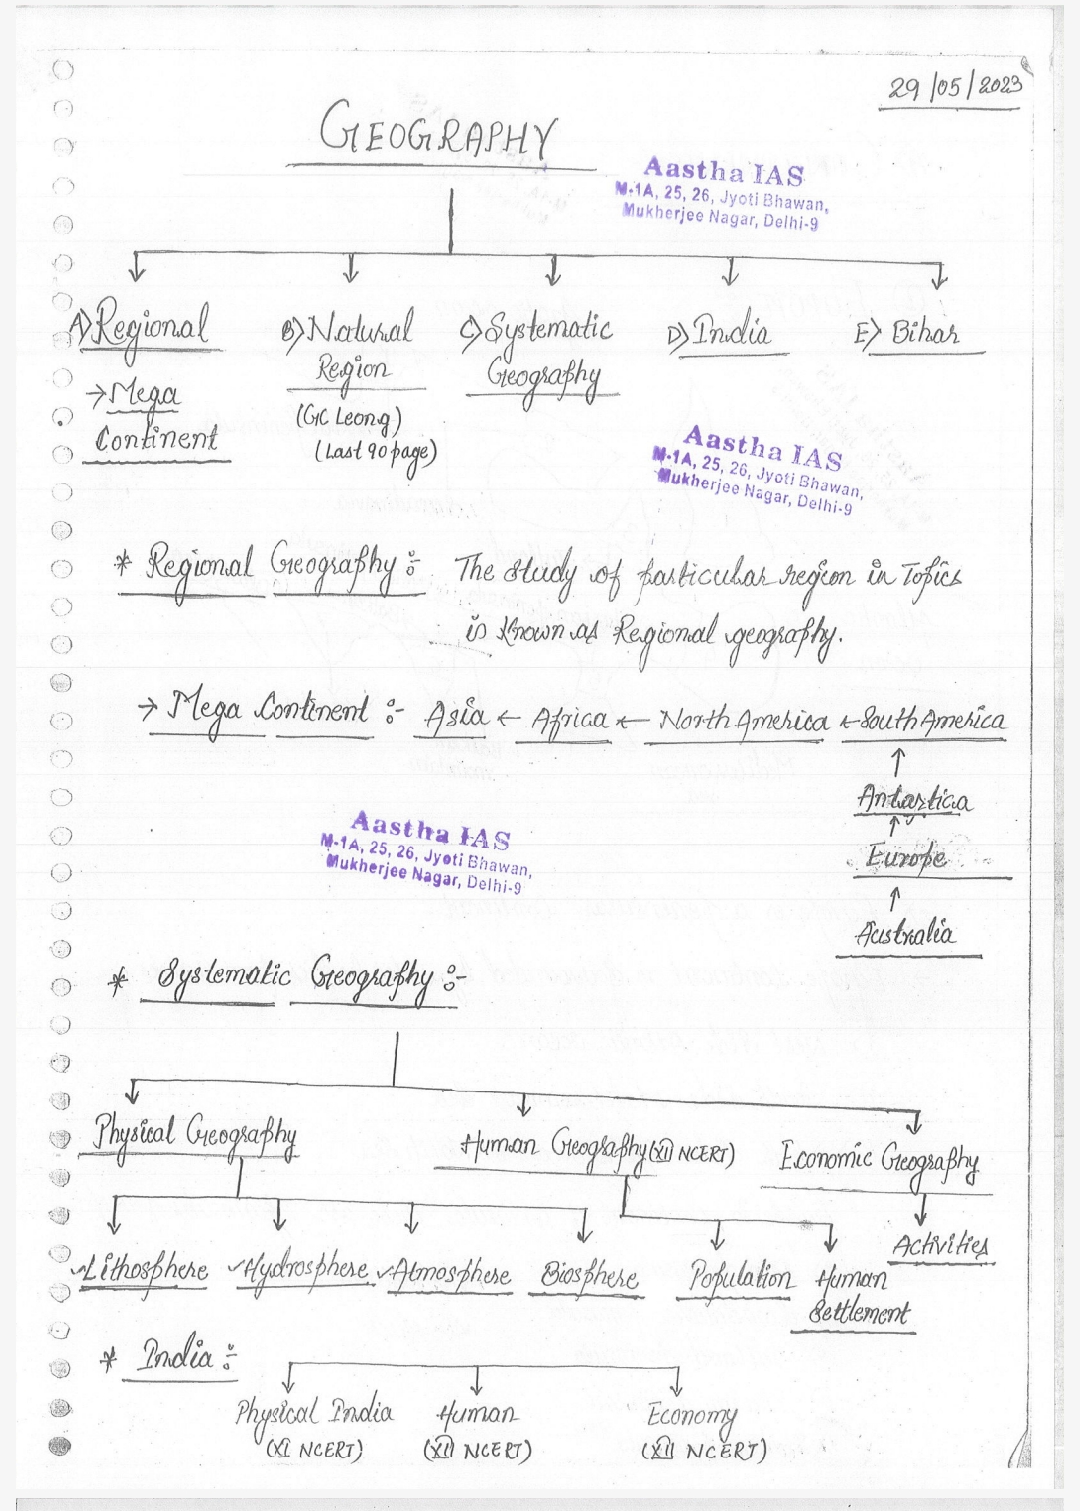 29/05/2023
GEOGRAPHY
Aastha IAS
M-1A, 25, 26, Jyoti Bhawan,
Mukherjee Nagar, Delhi-9
A) Regional
→ Mega
Continent
B) Natural
Region
(GC Leong)
(Last 90 page)
C) Systematic
Geography
D) India
E) Bihar
Aastha IAS
M-1A, 25, 26, Jyoti Bhawan,
Mukherjee Nagar, Delhi-9
* Regional Geography :- The study of particular region in Topics
is known as Regional geography.
→ Mega Continent :- Asia ← Africa ← North America ← South America
↑
Antartica
↑
Europe
↑
Australia
Aastha IAS
M-1A, 25, 26, Jyoti Bhawan,
Mukherjee Nagar, Delhi-9
* Systematic Geography :-
Physical Geography
Human Geography (XII NCERT)
Economic Geography
✓Lithosphere ✓Hydrosphere ✓Atmosphere Biosphere
Population
Human
Settlement
Activities
* India :-
Physical India
(XI NCERT)
Human
(XII NCERT)
Economy
(XII NCERT)